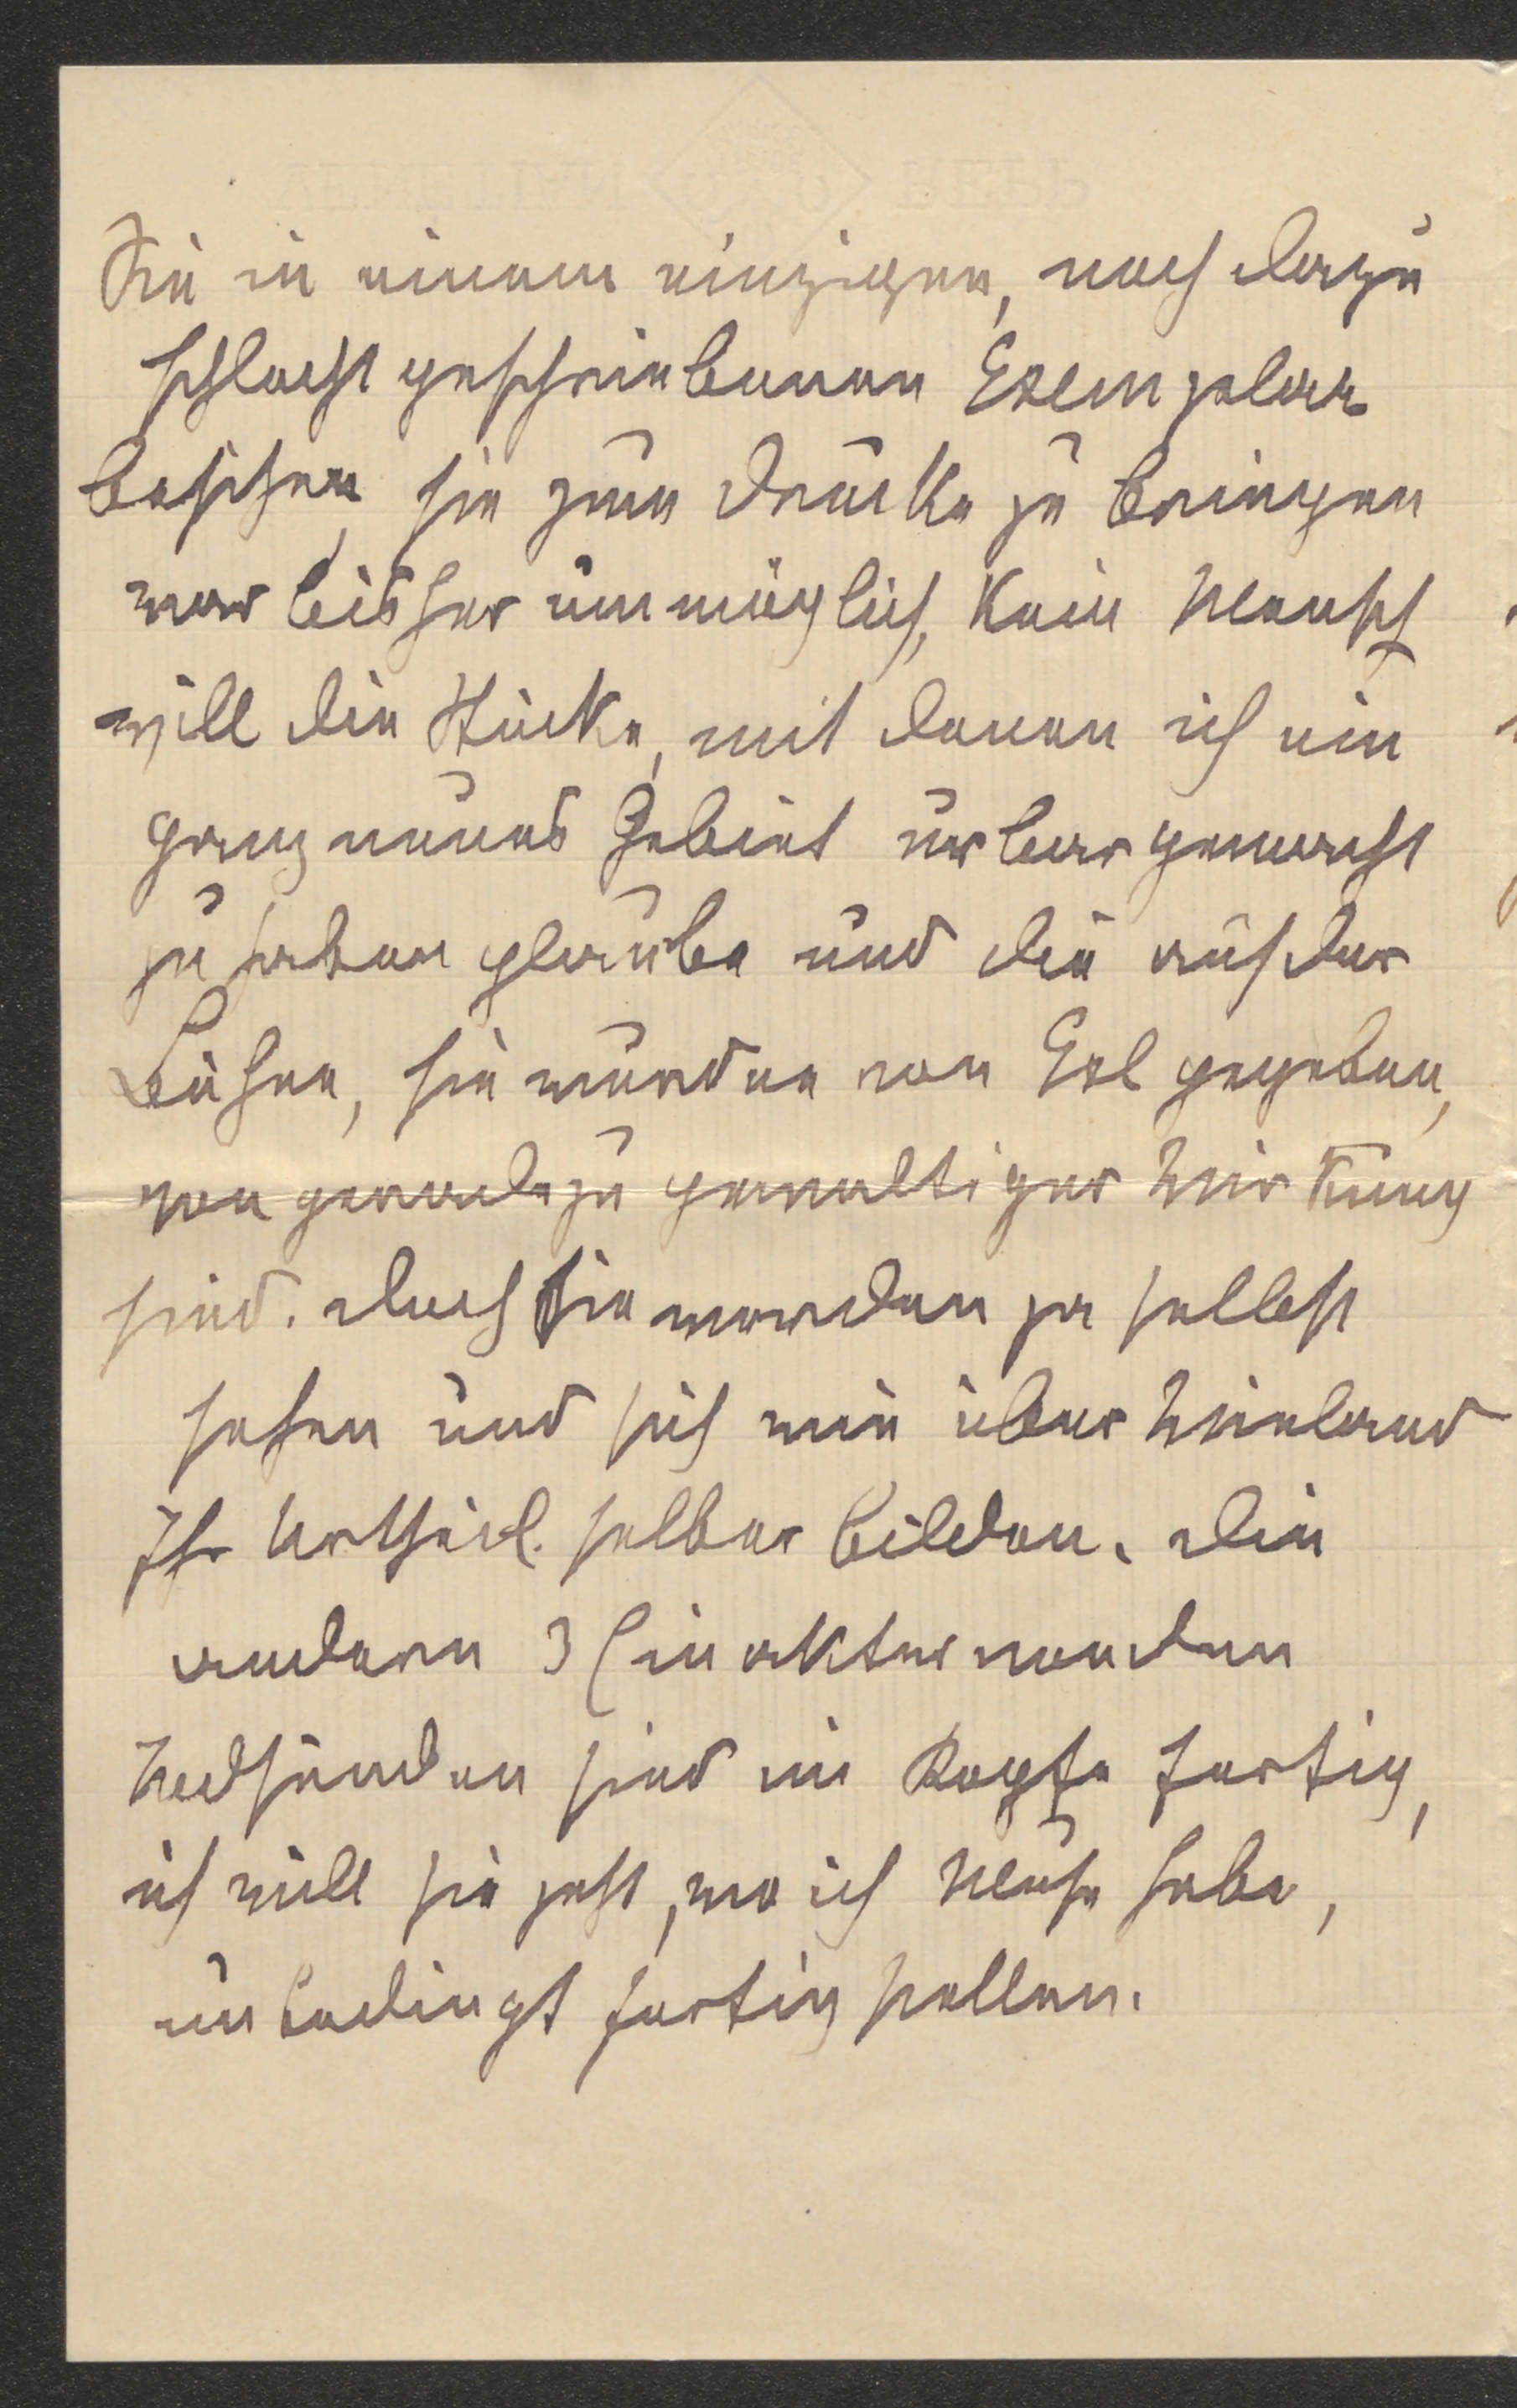 Sie in einem einzigen, noch dazu
schlecht geschriebenen Exemplar
besitzen, sie zum Drucke zu bringen
war bisher unmöglich, kein Mensch
will die Stücke, mit denen ich ein
ganz neues Gebiet urbar gemacht
zu haben glaube und die auf der
Bühne, sie wurden von Exl gegeben,
von geradezu gewaltiger Wirkung
sind. Doch Sie werden ja selbst
sehen und sich wie über Wieland
Ihr Urtheil selber bilden. Die
andern 3 (in akter werden
sind im Kopfe fertig,
ich will sie jetzt, wo ich Muße habe,
unbedingt fertig stellen.